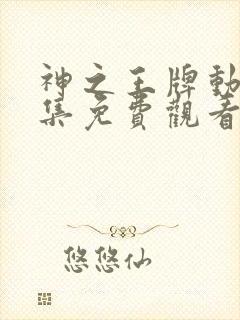 神之王牌動
集免費觀看
悠悠仙